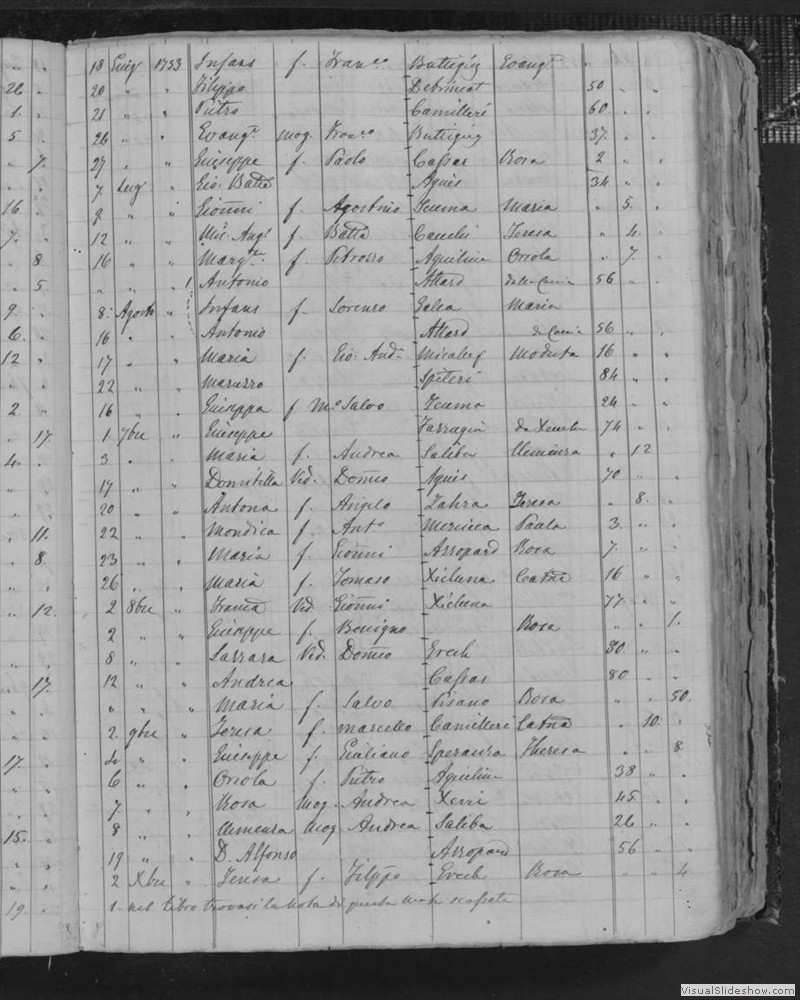 18 Giug 1733 Infans f. Franco Buttigieg Evang.
26 20 " " Filippo Debrincat 50 " "
1. 21 " " Pietro Camilleri 60 " "
5 26 " " Evang. mog. Franco Buttigieg 37 " "
7. 27 " " Giuseppe f. Paolo Cassar Rosa 2 " "
7 Lug " Gio. Batta Agius 34 " "
16 9 " " Gionni f. Agostino Scuma Maria " 5. "
7. 12 " " Mic. Ang. f. Batta Cauchi Teresa " 4. "
8 16 " " Marg. f. Petrozzo Aquilina Orsola " 7. "
5. " " " 1. Antonio Attard 56 " "
9. 8. Agosto " Infans f. Lorenzo Galea Maria
6. 16 " " Antonio Attard 56 " "
12 17 " " Maria f. Gio. And. Micallef Modesta 16 " "
22 " " Maruzzo Spiteri 84 " "
2. 16 " " Giuseppa f. Mo. Salvo Scuma 24 " "
17. 1. 7bre " Giuseppe Farrugia 74 " "
4. 3 " " Maria f. Andrea Saliba " 12
17 " " Domitilla Vid. Domco Agius 70 " "
20 " " Antona f. Angelo Zahra Teresa " 8. "
11. 22 " " Mondica f. Anto Mercieca Paola 3. " "
8. 23 " " Maria f. Gionni Azzopard Rosa 7. " "
26 " " Maria f. Tomaso Xicluna Catna 16 " "
12. 2 8bre " Franca Vid. Gionni Xicluna 77 " "
2 " " Giuseppe f. Benigno Rosa " " 1.
8 " " Sarrara Vid. Domco Grech 80 " "
17. 12 " " Andrea Cassar 80 " "
" " " Maria f. Salvo Pisano Rosa " " 50.
2. 9bre " Teresa f. Marcello Camilleri Catna " 10. "
17. 4 " " Giuseppe f. Giuliano Speranza Theresa " " 8
6 " " Orsola f. Pietro Aquilina 38 " "
7. " " Rosa Mog. Andrea Xerri 45. " "
15. 8 " " Mog Andrea Saliba 26 " "
19 " " D. Alfonso Azzopard 56 " "
2 Xbre " Teresa f. Filippo Grech Rosa " " 4
19. 1. nel Libro trovasi la nota di questa
VisualSlideshow.com